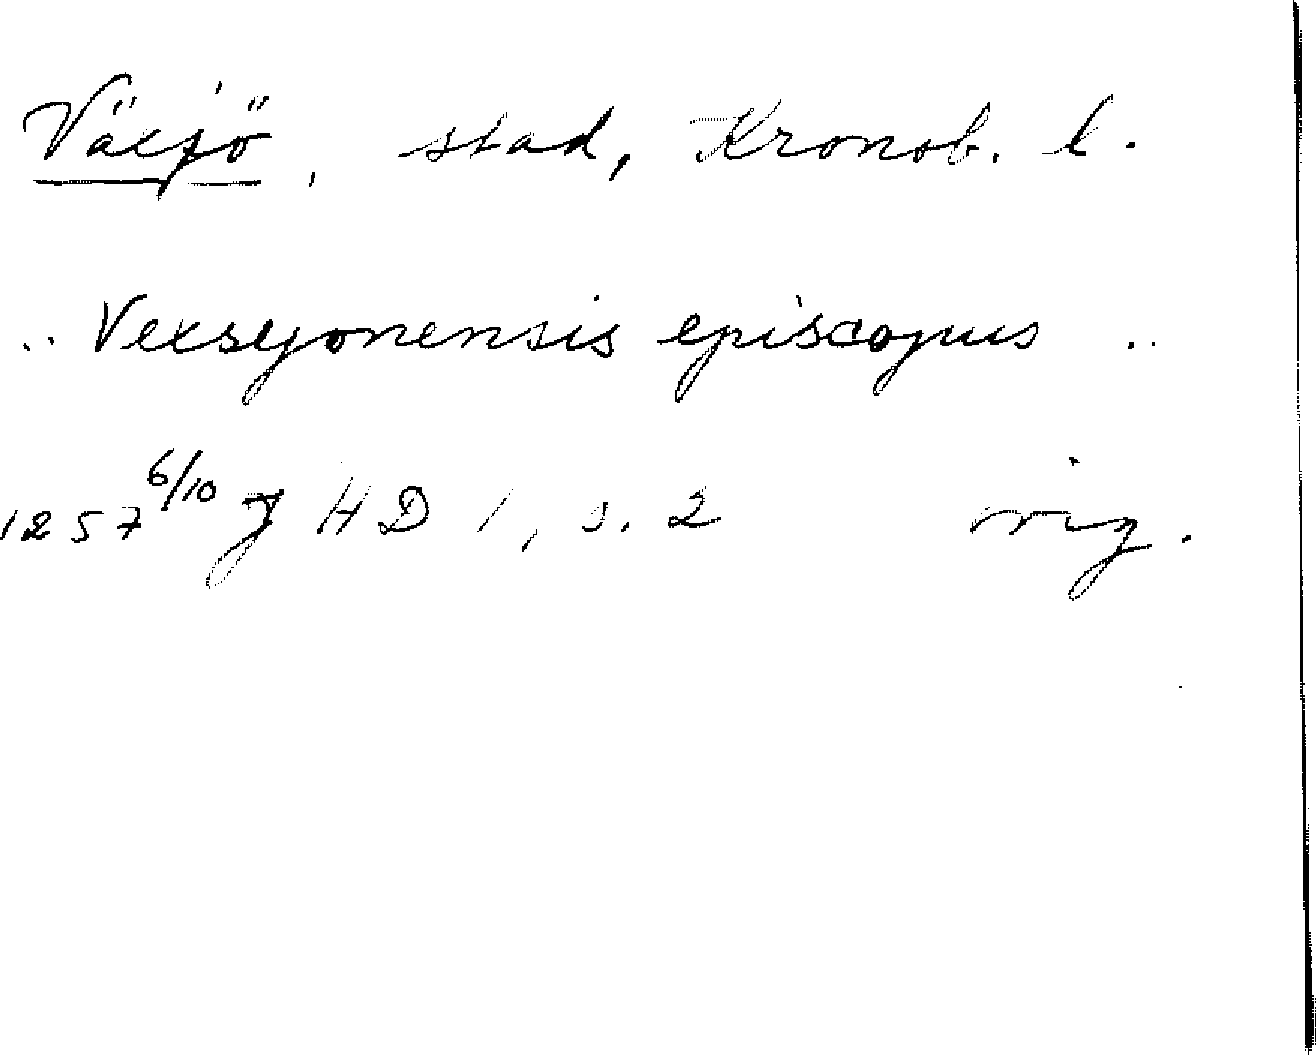 Växjö, stad, Kronob. l.
.. Vexsyonensis episcopus ..
1257 6/10 J HD 1, s. 2 orig.